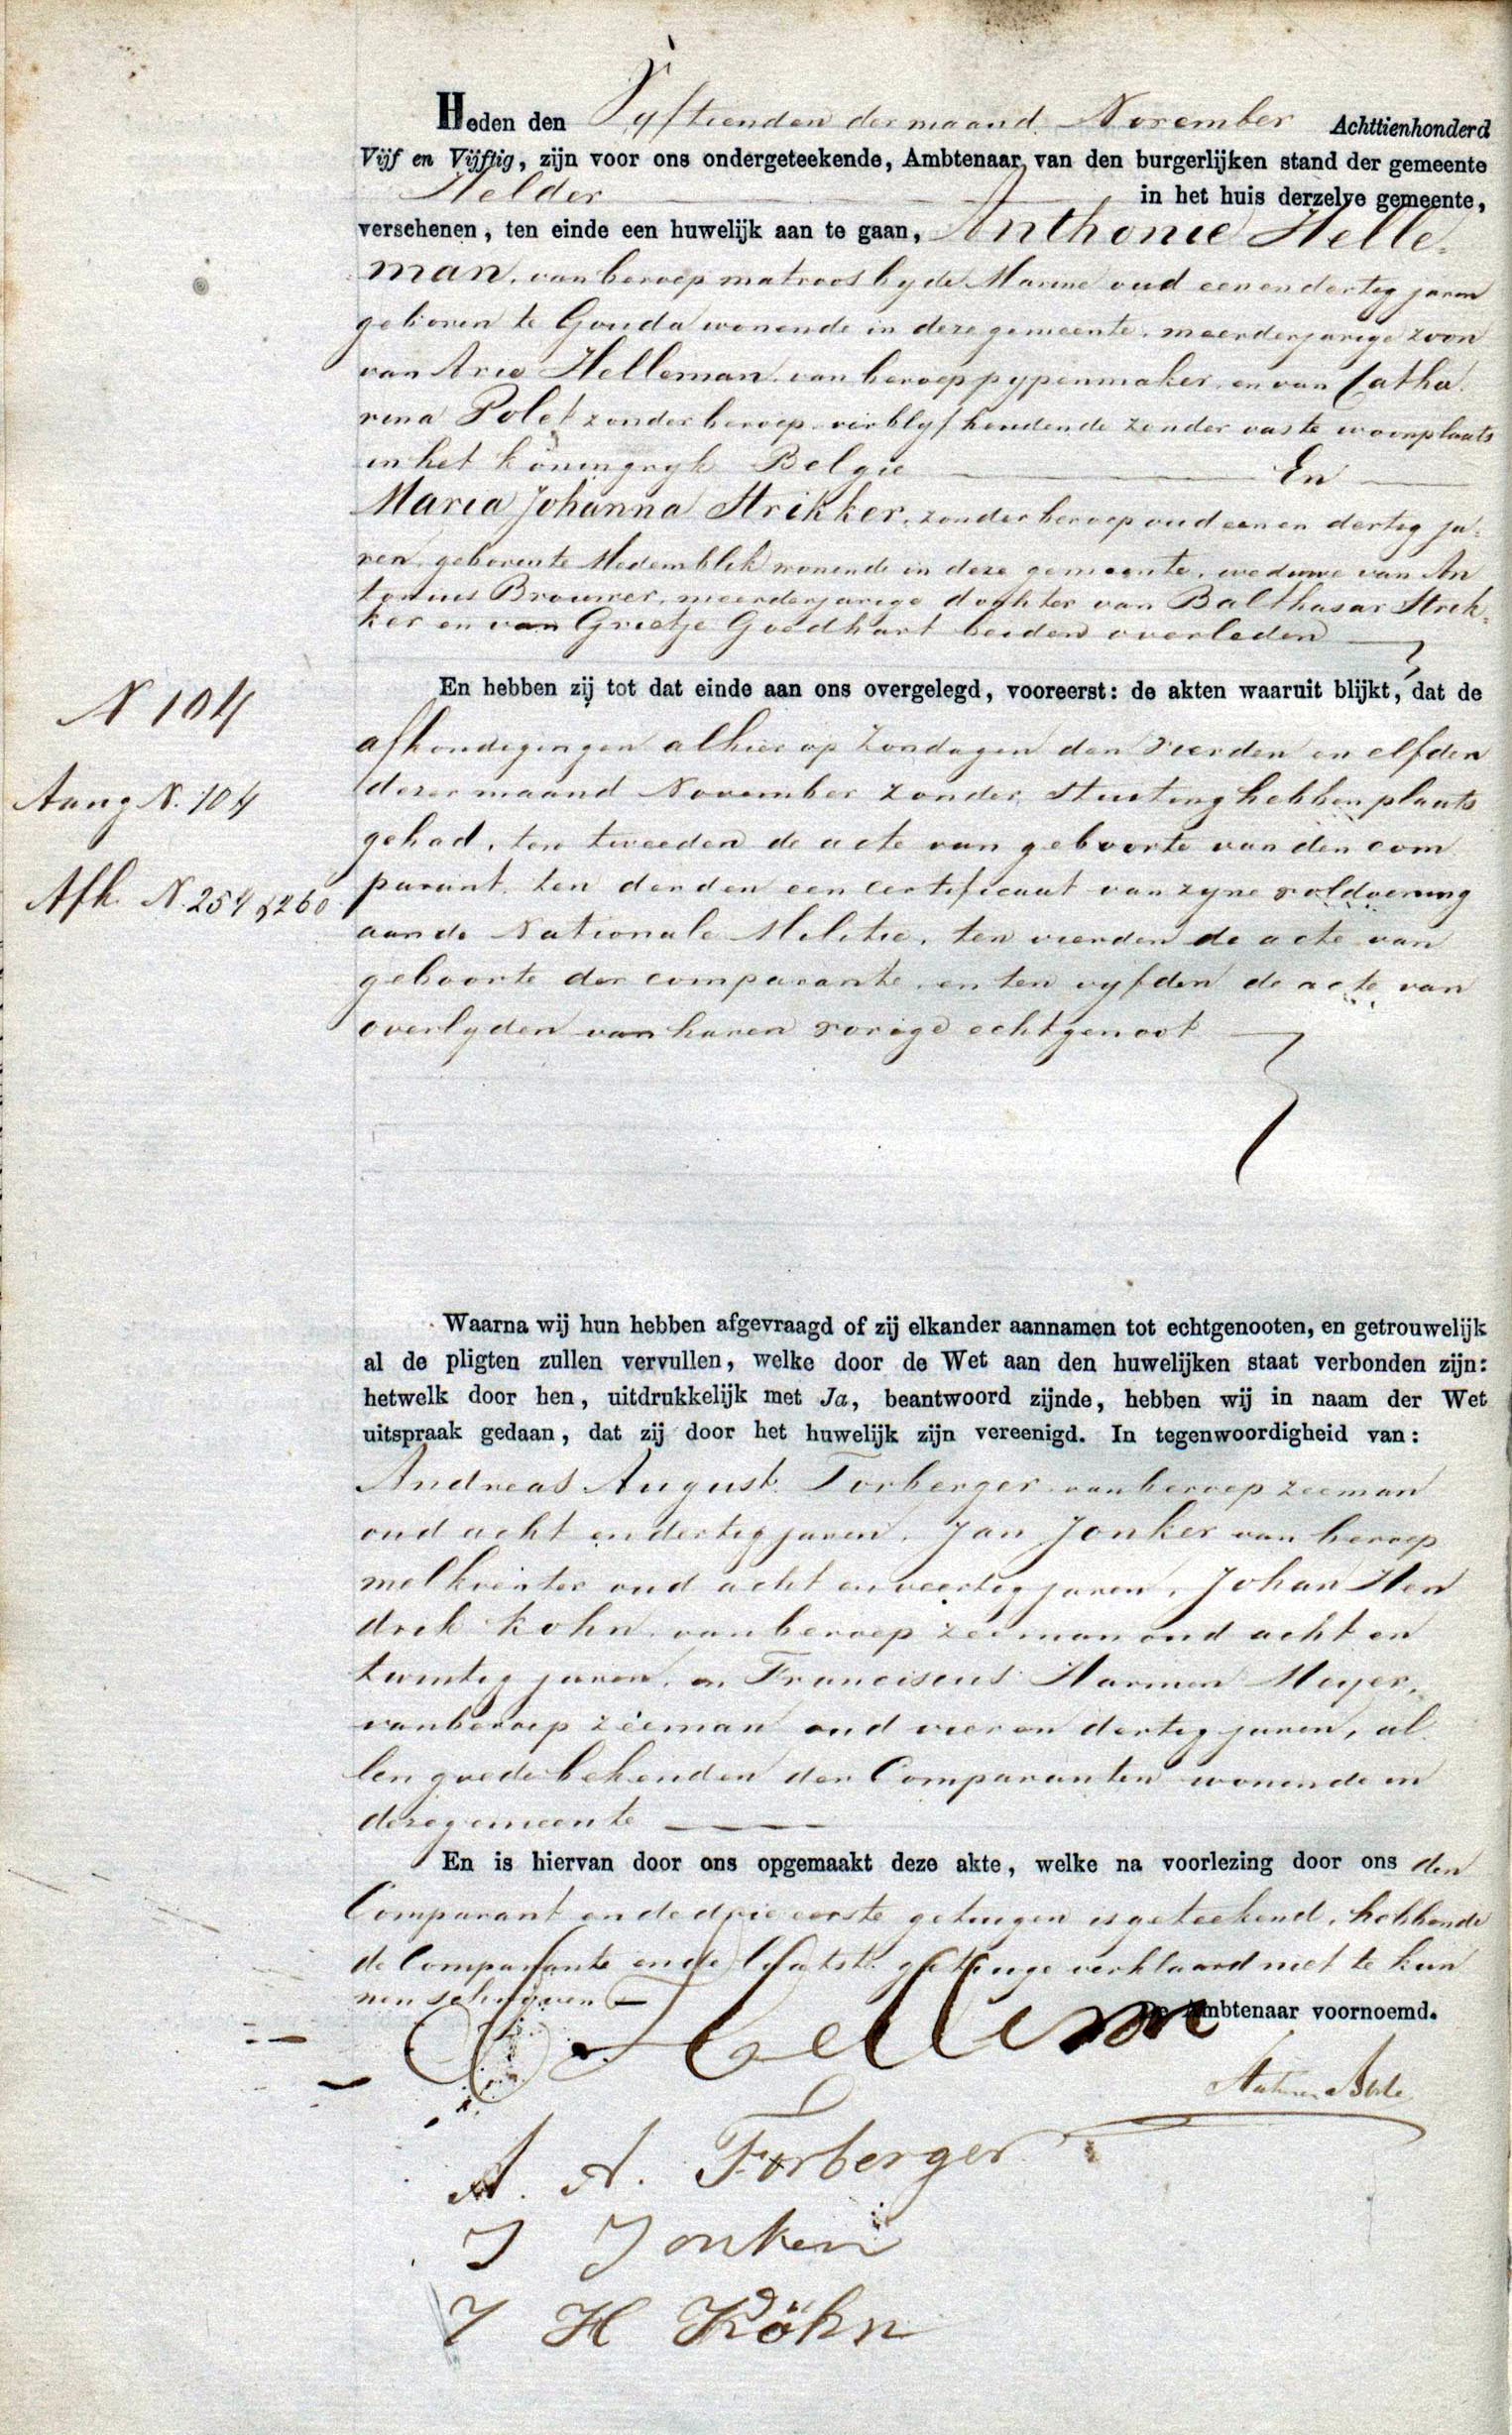 Heden den Vyftienden der maand November Achttienhonderd
Vijf en Vijftig, zijn voor ons ondergeteekende, Ambtenaar van den burgerlijken stand der gemeente
Helder in het huis derzelve gemeente,
verschenen, ten einde een huwelijk aan te gaan, Anthonie Helle-
man, van beroep matroos by de Marine oud een en dertig jaren
geboren te Gouda wonende in deze gemeente, meerderjarige zoon
van Arie Helleman, van beroep pypenmaker, en van Catha
rina Polet zonder beroep verblyf houdende zonder vaste woonplaats
in het koningryk Belgie En
Maria Johanna Strikker, zonder beroep oud een en dertig ja-
ren, geboren te Medemblik wonende in deze gemeente, weduwe van An
tonius Brouwer, meerderjarige dochter van Balthasar Strik-
ker en van Grietje Goedhart beiden overleden
N 104
En hebben zij tot dat einde aan ons overgelegd, vooreerst: de akten waaruit blijkt, dat de
afkondigingen alhier op Zondagen den vierden en elfden
Aang N. 104
dezer maand November zonder stuiting hebben plaats
gehad, ten tweeden de acte van geboorte van den com
Afk. N. 254 & 260
parant, ten derden een certificaat van zyne voldoening
aan de Nationale Militie, ten vierden de acte van
geboorte der comparante, en ten vyfden de acte van
overlyden van haren vorige echtgenoot
Waarna wij hun hebben afgevraagd of zij elkander aannamen tot echtgenooten, en getrouwelijk
al de pligten zullen vervullen, welke door de Wet aan den huwelijken staat verbonden zijn:
hetwelk door hen, uitdrukkelijk met Ja, beantwoord zijnde, hebben wij in naam der Wet
uitspraak gedaan, dat zij door het huwelijk zijn vereenigd. In tegenwoordigheid van:
Andreas August Forberger van beroep zeeman
oud acht en dertig jaren, Jan Jonker van beroep
melkventer oud acht en veertig jaren, Johan Hen
drik Kohn, van beroep zeeman oud acht en
twintig jaren, en Franciscus Harmen Meyer,
van beroep zeeman oud vier en dertig jaren, al
len goede bekenden der Comparanten wonende in
deze gemeente
En is hiervan door ons opgemaakt deze akte, welke na voorlezing door ons den
Comparant en de drie eerste getuigen is geteekend, hebbende
de Comparante en de laatste getuige verklaard niet te kun
nen schryven
De Ambtenaar voornoemd.
A. A. Forberger
J Jonker
J H Köhn